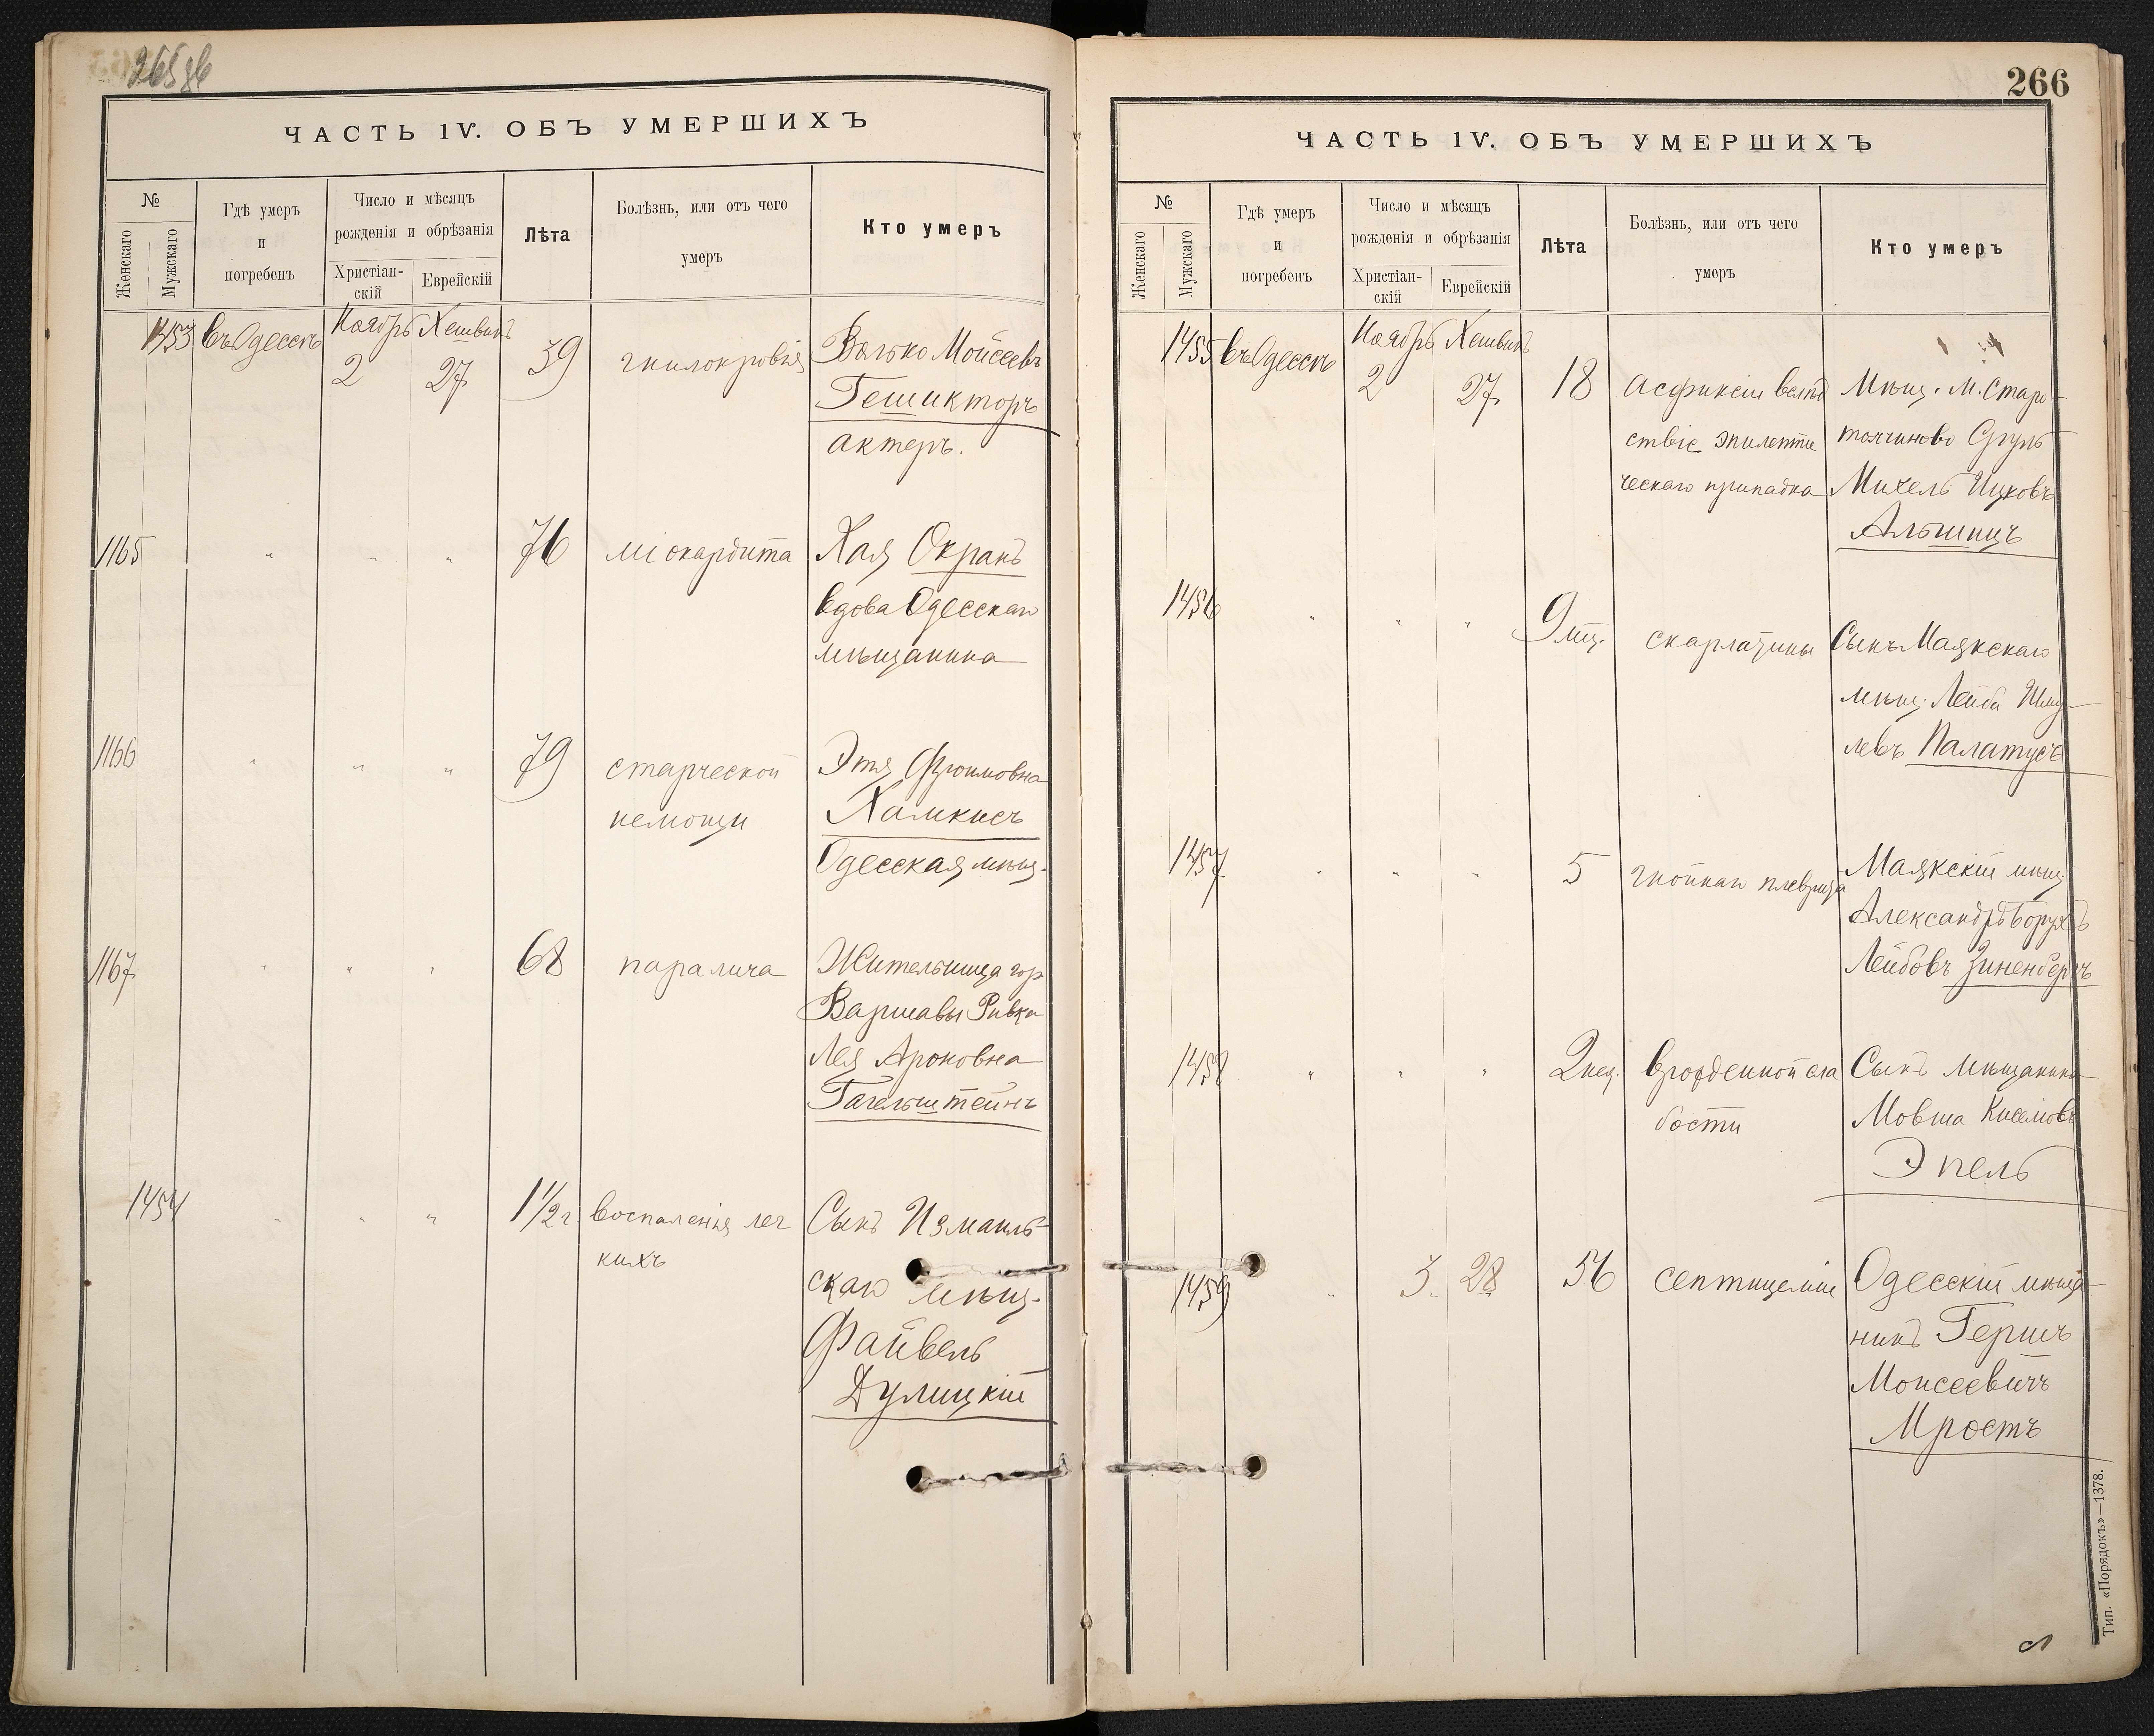 265 зв
ЧАСТЬ IV. ОБЪ УМЕРШИХЪ
№
Женскаго
Мужскаго
Гдѣ умеръ
и
погребенъ
Число и мѣсяцъ
рожденія и обрѣзанія
Христіан-
скій
Еврейскій
Лѣта
Болѣзнь, или отъ чего
умеръ
Кто умеръ
1453 въ Одессѣ Ноябрь 2 Хешвинъ 27 39 гнилокровія Волько Мойсеевъ
Гешикторъ
актеръ.
1165 " " " 76 міокардита Хая Окранъ
вдова Одесскаго
мѣщанина
1166 " " " 79 старческой Этя Фроимовна
немощи Хамкисъ
Одесская мѣщ.
1167 " " " 68 паралича Жительница гор
Варшавы Ривка
Лея Ароновна
Гагельштейнъ
1454 " " " 1 1/2 г. воспаленія лег Сынъ Измаиль-
кихъ скаго мѣщ.
Файвель
Дулицкій
266
ЧАСТЬ IV. ОБЪ УМЕРШИХЪ
№
Женскаго
Мужскаго
Гдѣ умеръ
и
погребенъ
Число и мѣсяцъ
рожденія и обрѣзанія
Христіан-
скій
Еврейскій
Лѣта
Болѣзнь, или отъ чего
умеръ
Кто умеръ
1455 въ Одессѣ Ноябрь 2 Хешвинъ 27 18 асфиксіи вслѣд Мѣщ. М. Старо-
ствіе эпилепти
ческаго припадка Михель Ицковъ
Альшицъ
1456 " " " 9 мц. скарлатины Сынъ Маякскаго
мѣщ. Лейба Шму-
левъ Палатусъ
1457 " " " 5 гнойнаго плеврита Маякскій мѣщ.
Александръ Борухъ
Лейбовъ Зиненбергъ
1458 " " " 2 нед. врожденной сла Сынъ мѣщанина
бости Мовша Киселювъ
Эпель
1459 " 3. 28 56 септицеміи Одесскій мѣща-
нинъ Гершъ
Моисеевичъ
Мростъ
Тип. «Порядокъ»—1378.